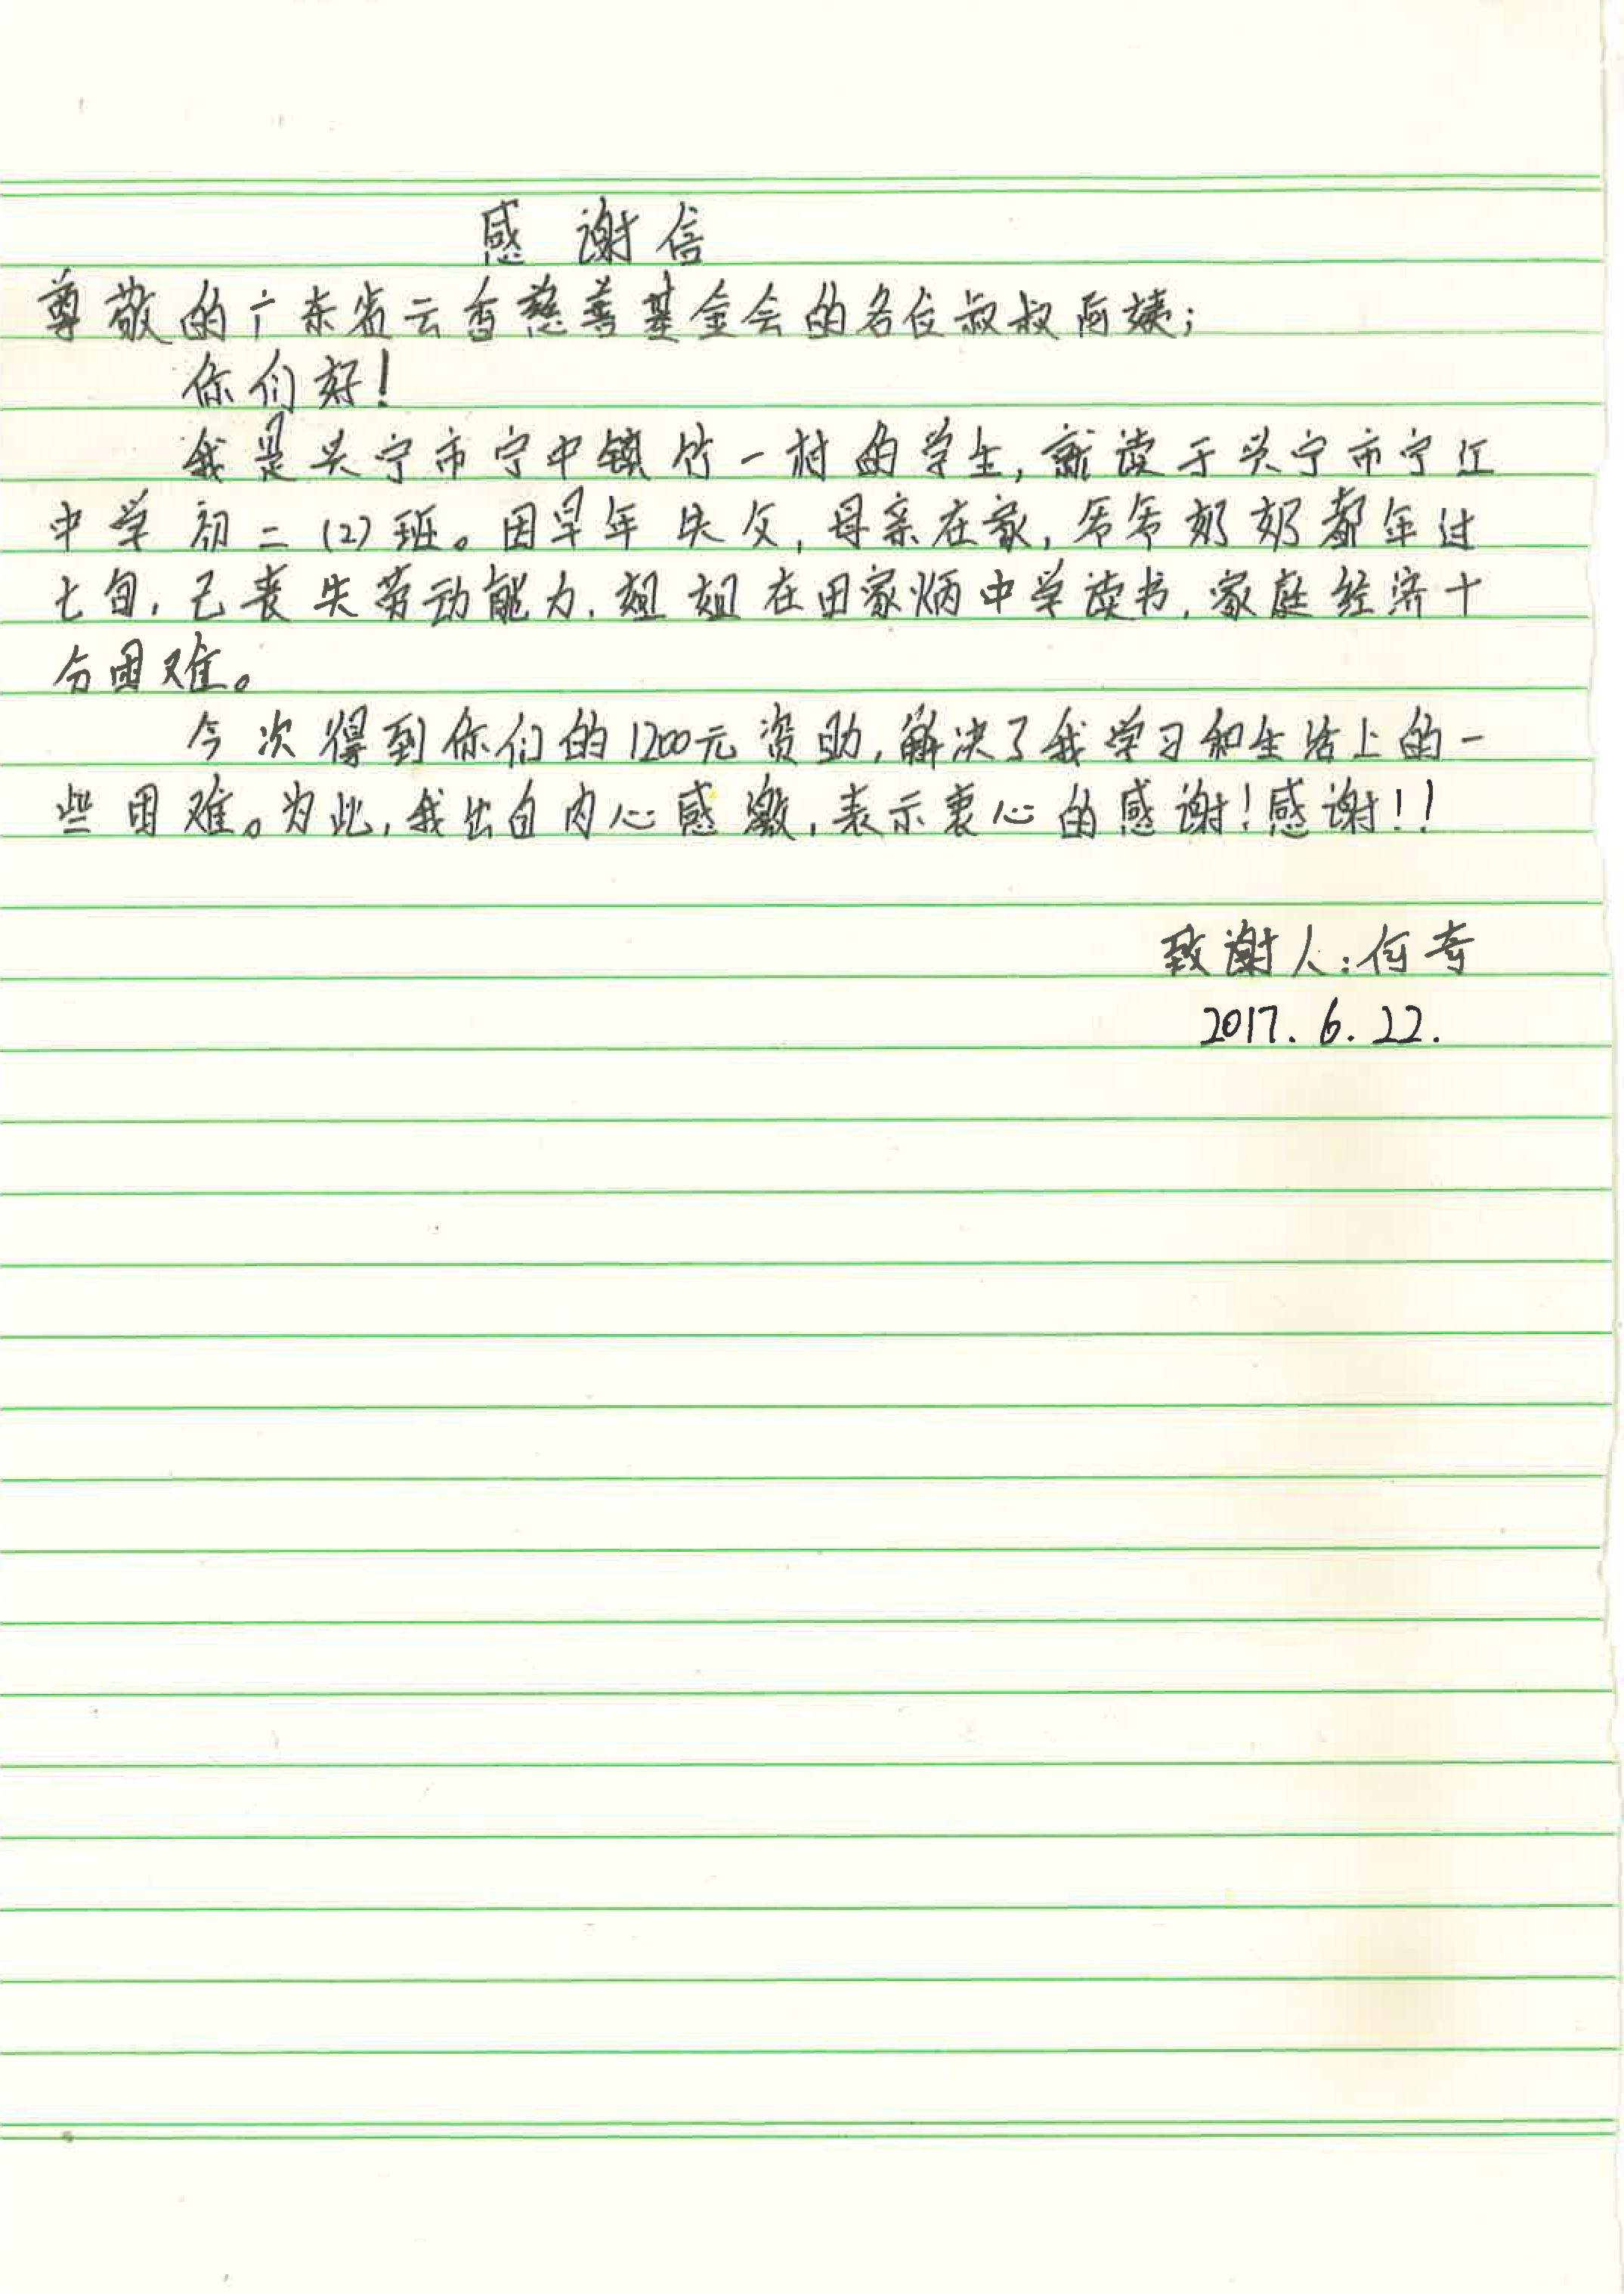 感谢信
尊敬的广东省云香慈善基金会的各位叔叔阿姨；
你们好！
我是兴宁市宁中镇竹一村的学生，就读于兴宁市宁江
中学初二（2）班。因早年失父，母亲在家，爷爷奶奶都年过
七旬，已丧失劳动能力，姐姐在田家炳中学读书，家庭经济十
分困难。
今次得到你们的1200元资助，解决了我学习和生活上的一
些困难。为此，我出自内心感激，表示衷心的感谢！感谢！！
致谢人：何奇
2017.6.22.